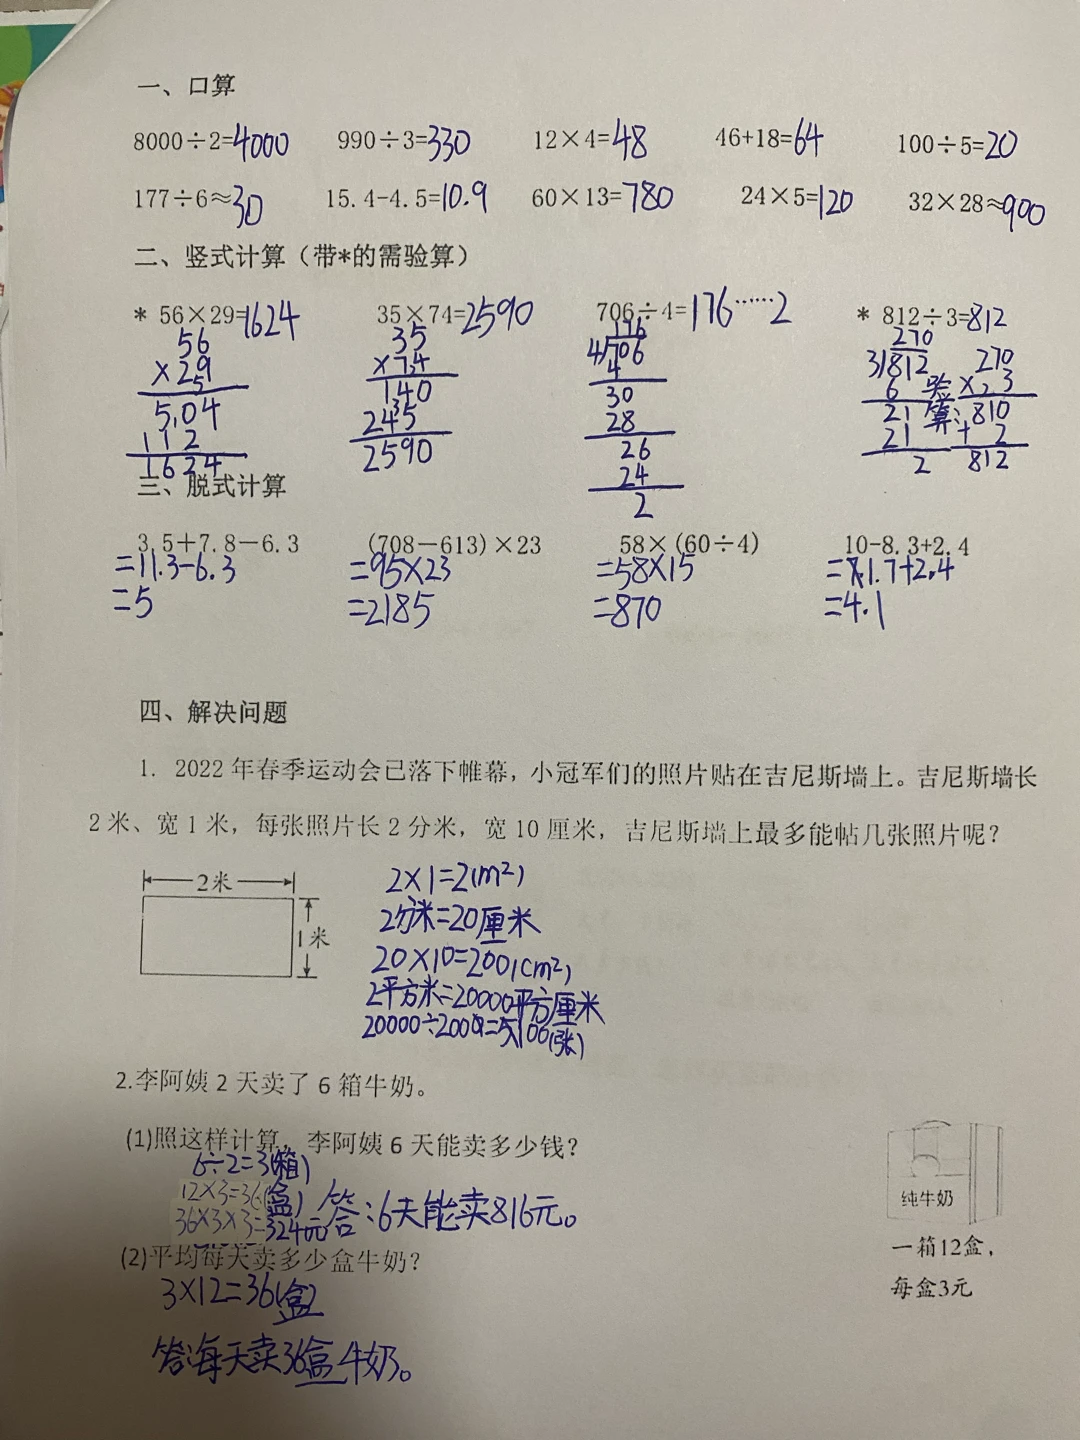 一、口算
8000÷2=4000 990÷3=330 12×4=48 46+18=64 100÷5=20
177÷6≈30 15.4-4.5=10.9 60×13=780 24×5=120 32×28≈900
二、竖式计算（带*的需验算）
* 56×29=1624 35×74=2590 706÷4=176……2 * 812÷3=812
56 35 176 270
×29 ×74 4)706 3)812 270
5 4 6 验 ×3
504 140 30 21 算: 810
112 245 28 21 + 2
1624 2590 26 2 812
24
2
三、脱式计算
3.5+7.8-6.3 (708-613)×23 58×(60÷4) 10-8.3+2.4
=11.3-6.3 =95×23 =58×15 =1.7+2.4
=5 =2185 =870 =4.1
四、解决问题
1. 2022年春季运动会已落下帷幕，小冠军们的照片贴在吉尼斯墙上。吉尼斯墙长
2米、宽1米，每张照片长2分米，宽10厘米，吉尼斯墙上最多能帖几张照片呢？
2米
1米
2×1=2(m²)
2分米=20厘米
20×10=200(cm²)
2平方米=20000平方厘米
20000÷200=100(张)
2.李阿姨2天卖了6箱牛奶。
(1)照这样计算，李阿姨6天能卖多少钱？
6÷2=3(箱)
12×3=36(盒)
36×3×3=324元 答:6天能卖816元。
纯牛奶
一箱12盒，
每盒3元
(2)平均每天卖多少盒牛奶？
3×12=36(盒)
答:每天卖36盒牛奶。